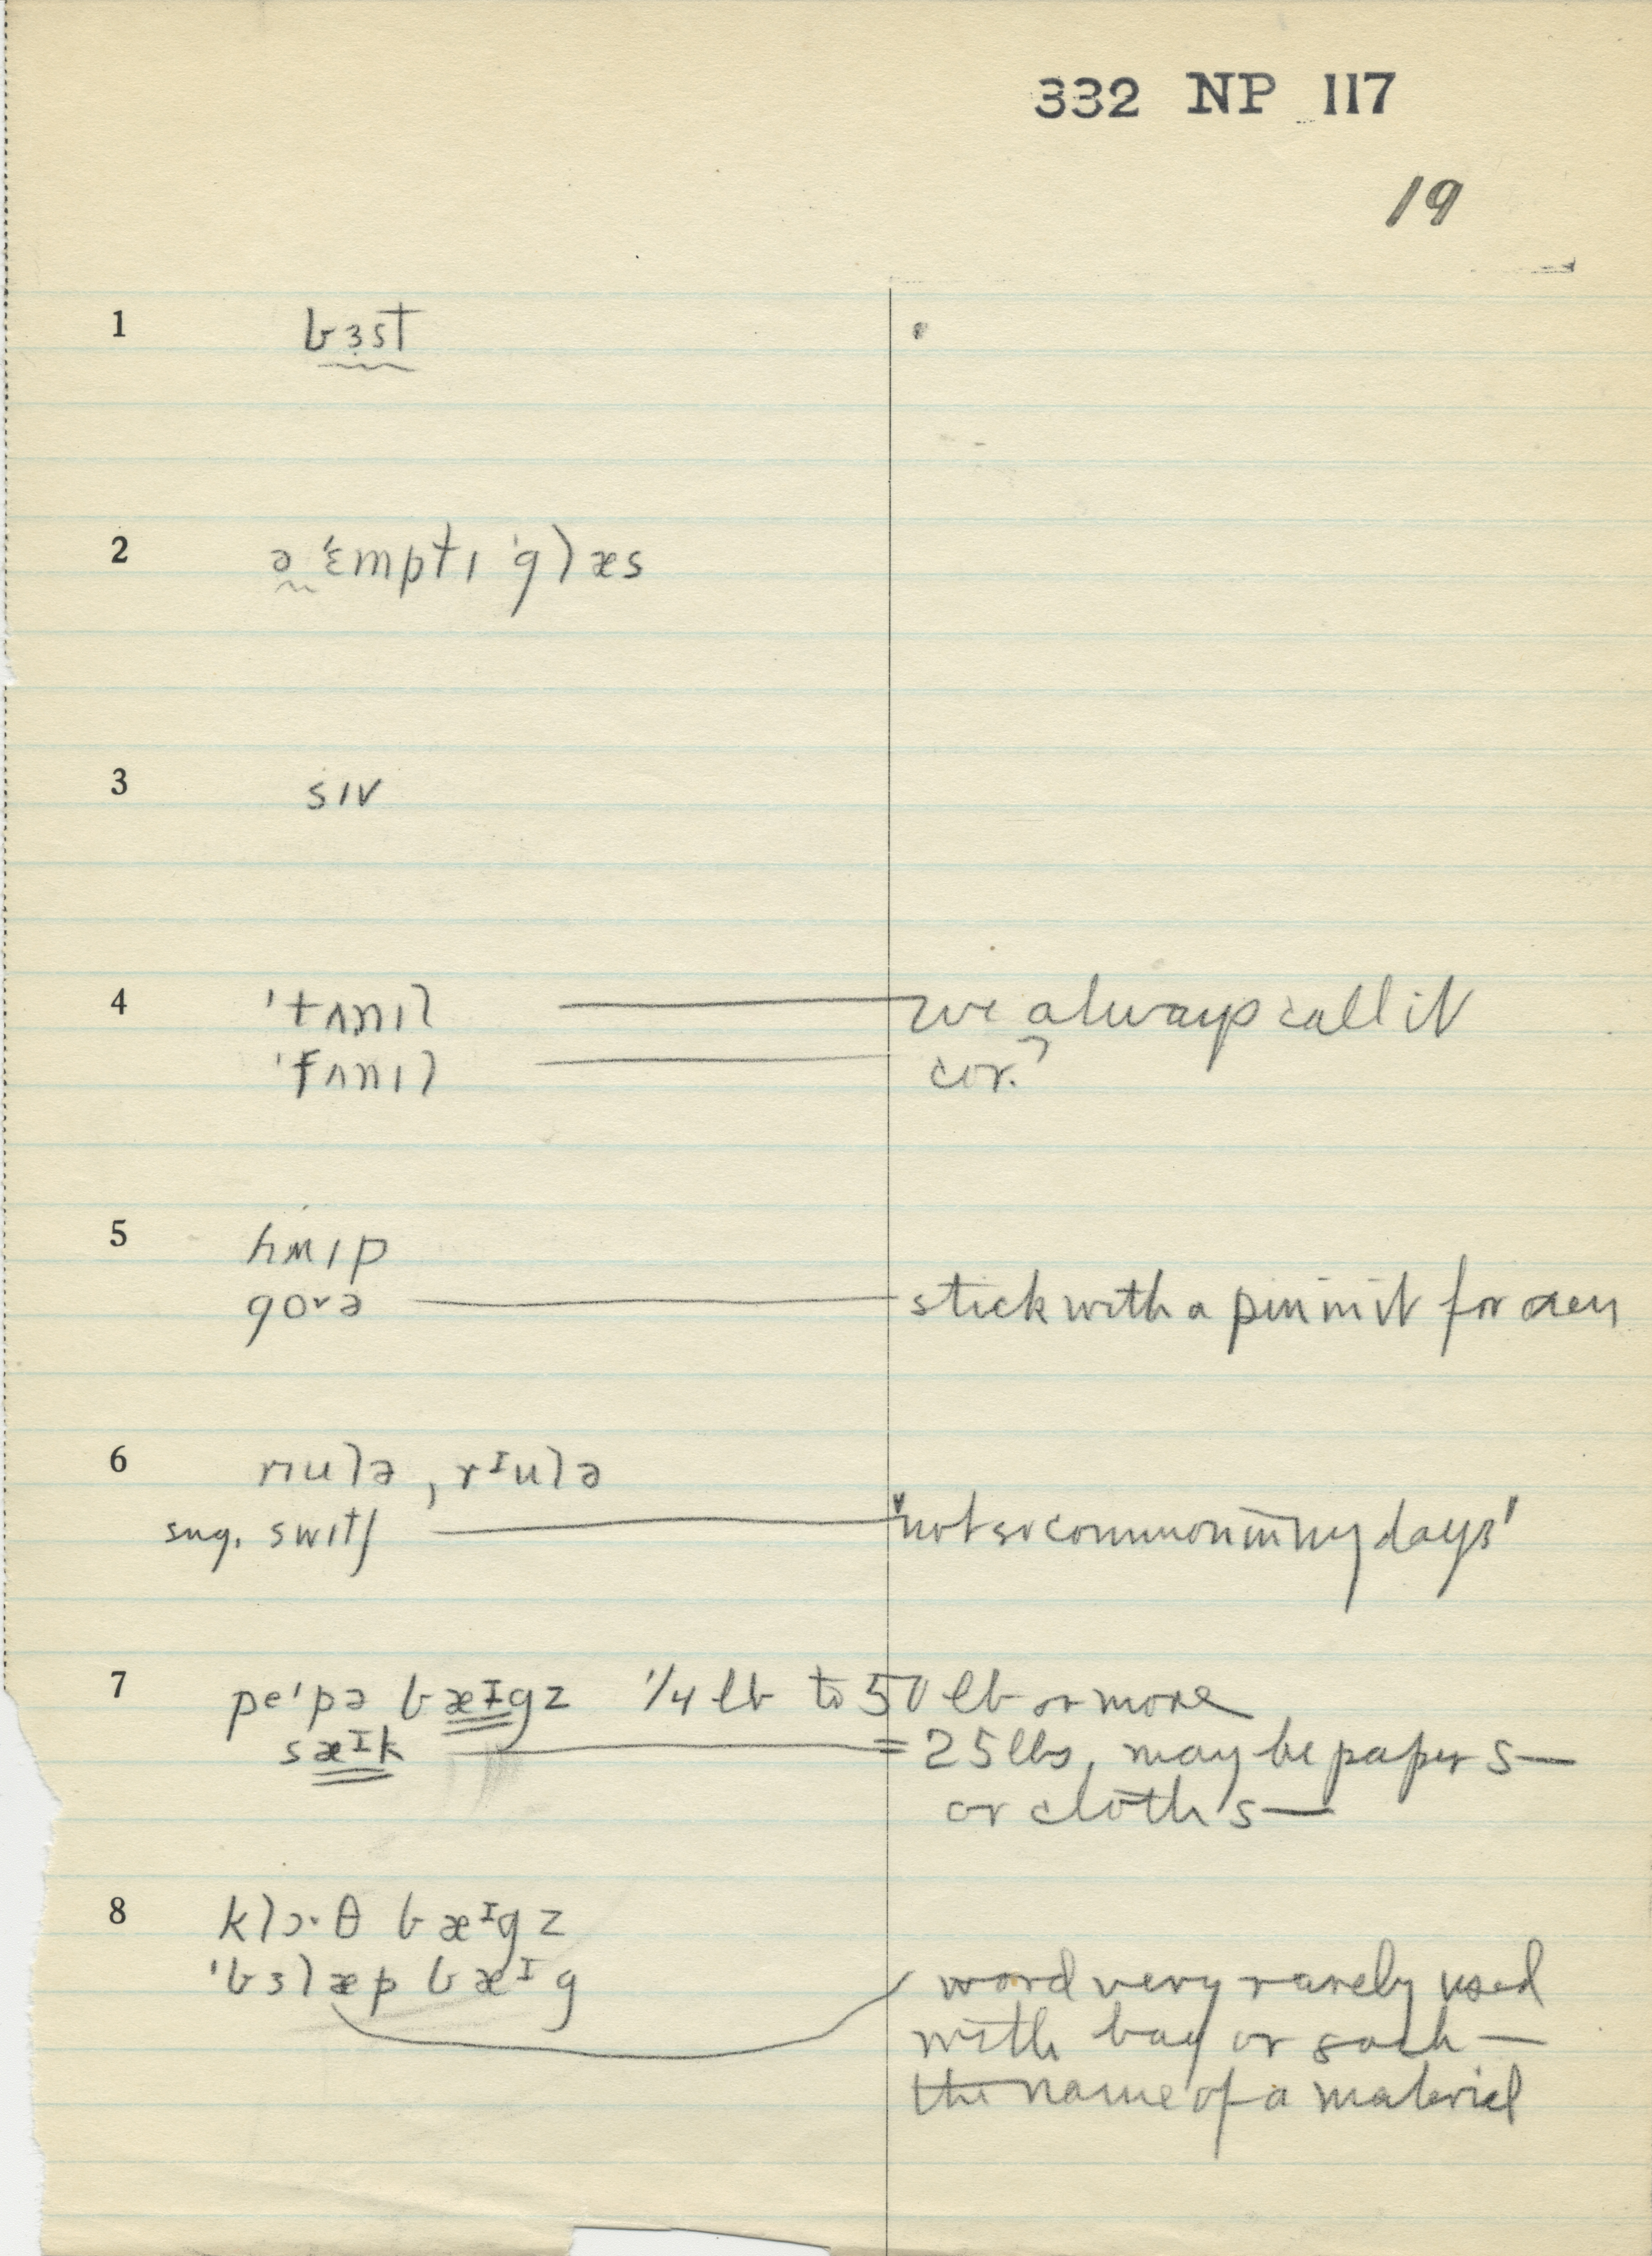 332 NP 117
19
1 bɜst
2 ə ˈɛmptɪ ˈglæs
3 sɪv
4 ˈtʌnɪl — we always call it
ˈfʌnɪl — cor.?
5 hʍɪp
goᵛə — stick with a pin in it for oxen
6 rɪulə, rᴵulə
sug. swɪtʃ — "not so common in my days"
7 peˈpə bæᴵgz 1/4 lb to 50 lb or more
sæᴵk = 25 lbs, may be paper s—
or cloth s—
8 klɔ·θ bæᴵgz
ˈbɜlæp bæᴵg word very rarely used
with bag or sack —
the name of a material